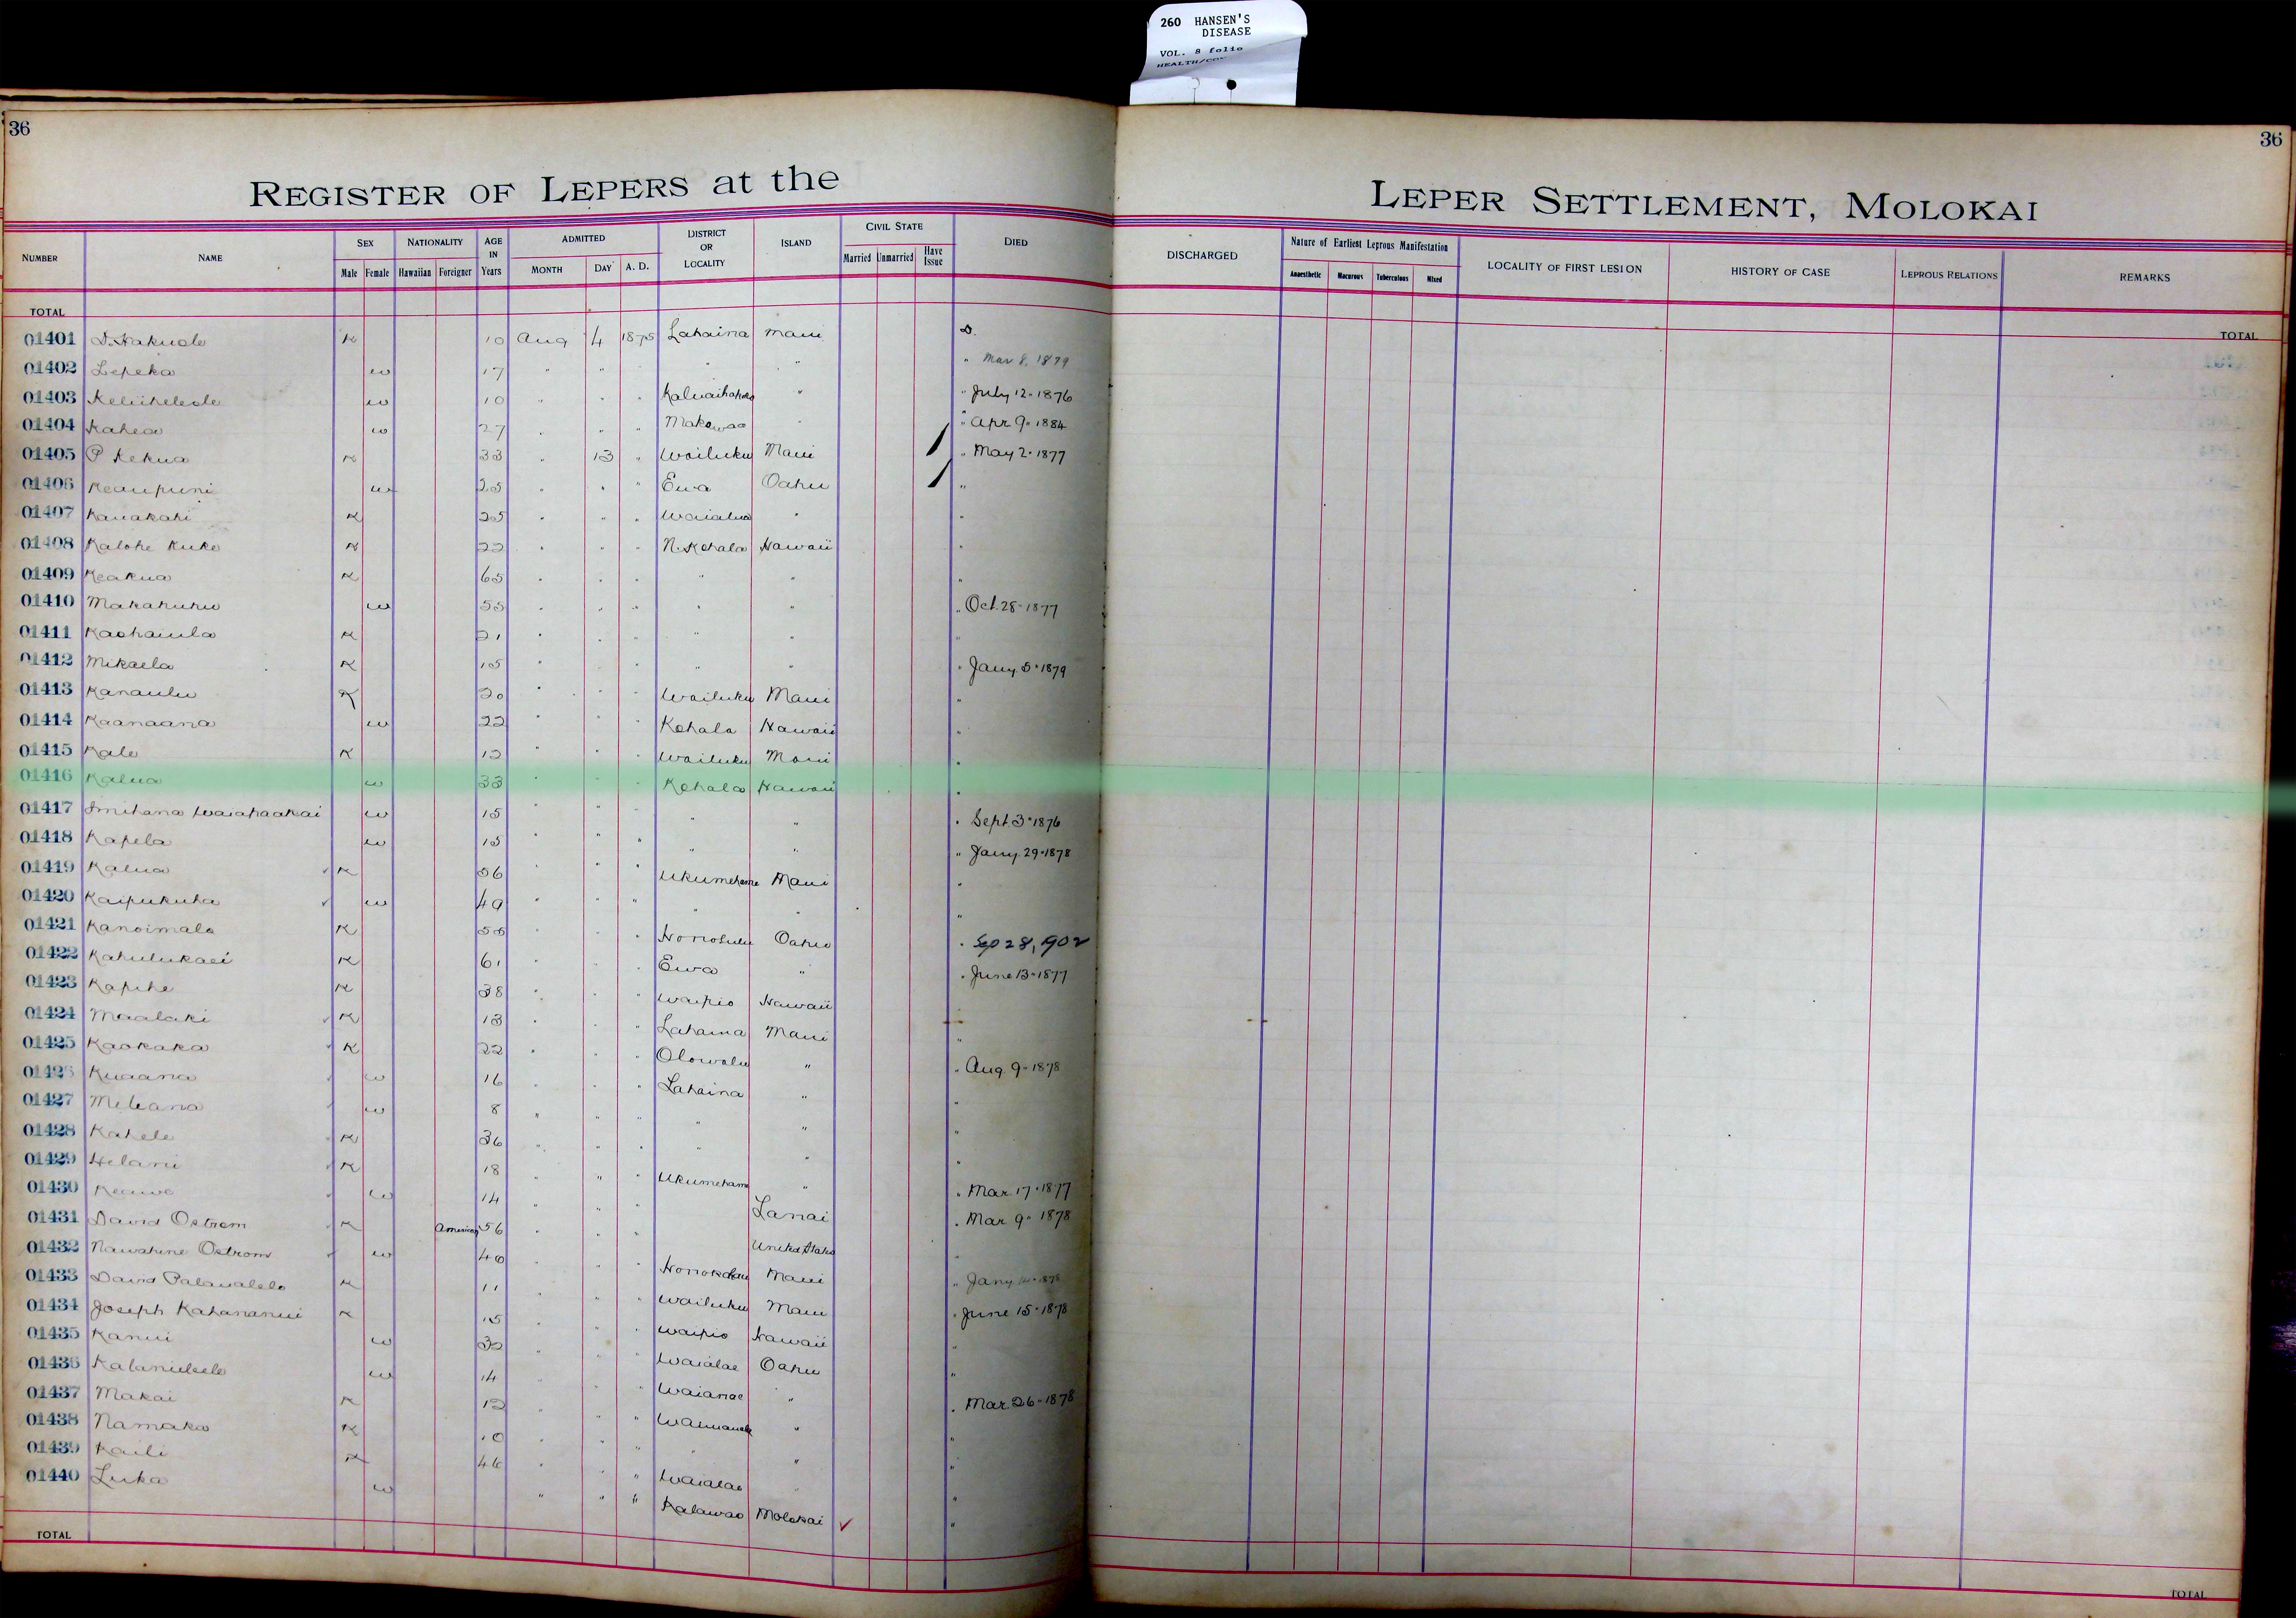 260 HANSEN'S
DISEASE
VOL. 8 folio
36
36
REGISTER OF LEPERS at the
LEPER SETTLEMENT, MOLOKAI
NUMBER NAME SEX Male Female NATIONALITY Hawaiian Foreigner AGE IN Years ADMITTED MONTH DAY A. D. DISTRICT OR LOCALITY ISLAND CIVIL STATE Married Unmarried Have Issue DIED
DISCHARGED Nature of Earliest Leprous Manifestation Anaesthetic Macurous Tuberculous Mixed LOCALITY OF FIRST LESION HISTORY OF CASE LEPROUS RELATIONS REMARKS
TOTAL
TOTAL
01401 D. Hakuole K 10 Aug 4 1875 Lahaina Maui D.
01402 Lepeka w 17 " " " " " " Mar 8, 1879
01403 Keliiheleole w 10 " " " " " July 12 - 1876
01404 Kahea w 27 " " " Makawao " " Apr 9 - 1884
01405 P Kekua K 33 " 13 " Wailuku Maui " May 2 - 1877
01406 Keaupuni w 25 " " " Ewa Oahu "
01407 Kauakahi K 25 " " " Waialua " "
01408 Kalohe Kuke K 22 " " " N. Kohala Hawaii "
01409 Keakua K 65 " " " " " "
01410 Makahuhu w 55 " " " " " " Oct. 28 - 1877
01411 Kaohaiula K 21 " " " " " "
01412 Mikaela K 15 " " " " " " Jany 5 - 1879
01413 Kanaulu K 20 " " " Wailuku Maui "
01414 Kaanaana w 22 " " " Kohala Hawaii "
01415 Kale K 12 " " " Wailuku Maui "
01416 Kalua w 33 " " " Kohala Hawaii "
01417 w 15 " " " " " " Sept. 3 - 1876
01418 Kapela w 15 " " " " " " Jany. 29 - 1878
01419 Kalua K 56 " " " Ukumehame Maui "
01420 Kaipukuha w 49 " " " " " "
01421 Kanoimalo K " " " Honolulu Oahu " Sep 28, 1902
01422 Kahulukaei K 61 " " " Ewa " " June 13 - 1877
01423 Kapihe K 38 " " " Waipio Hawaii
01424 Maalaki K 13 " " " Lahaina Maui "
01425 Kaokaka K 22 " " " Olowalu " " Aug. 9 - 1878
01426 Kuaana w 16 " " " Lahaina " "
01427 Meleana w 8 " " " " " "
01428 Kahele K 36 " " " " " "
01429 Helani K 18 " " " Ukumehame " " Mar. 17 - 1877
01430 Keawe w 14 " " " Lanai " Mar. 9 - 1878
01431 David Ostrom K American 56 " " " United States "
01432 Nawahine Ostrom w " " " Honokohau Maui " Jany
01433 David Palaualelo K 11 " " " Wailuku Maui " June 15 - 1878
01434 Joseph Kahananui K 15 " " " Waipio Hawaii "
01435 Kanui w 32 " " " Waialae Oahu "
01436 w 14 " " " Waianae " " Mar. 26 - 1878
01437 Makai K 12 " " " Waimanalo " "
01438 Namaka K 10 " " " " " "
01439 Kaili K 46 " " " Waialae " "
01440 Luka w " " " Kalawao Molokai ✓ "
TOTAL
TOTAL